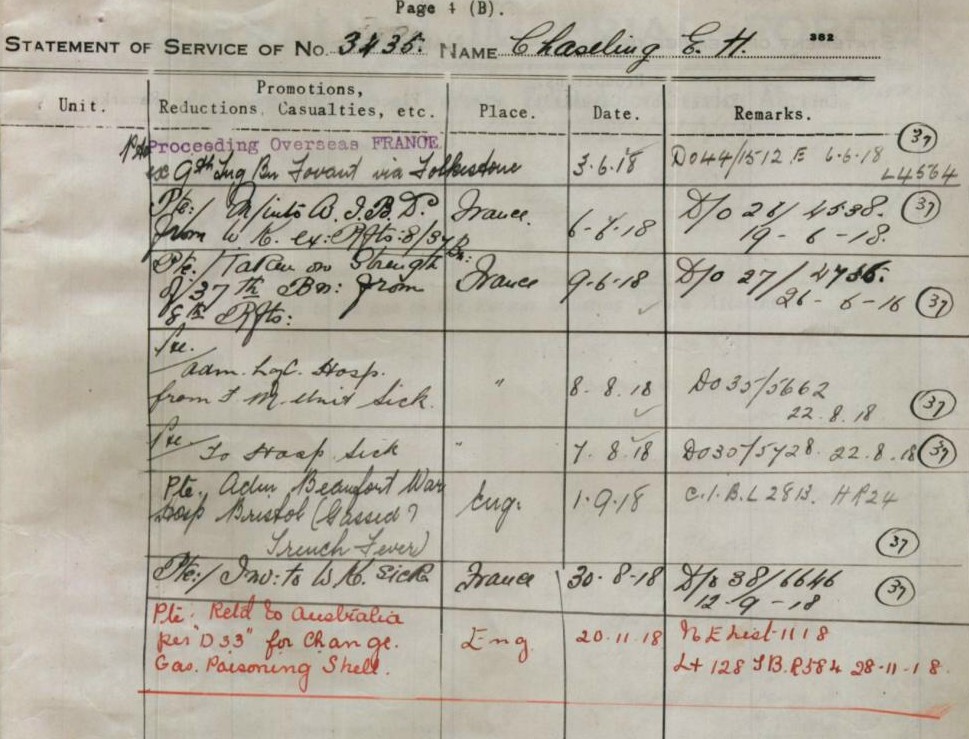 Page 4 (B).
STATEMENT OF SERVICE OF No. 3435. NAME Chaseling E. H. 382
Unit. Promotions, Reductions, Casualties, etc. Place. Date. Remarks.
Proceeding Overseas FRANCE
ex 9th Trg Bn Fovant via Folkestone 3.6.18 DO44/1512 E 6.6.18 L4564 37
Pte/ M/into A.I.B.D. France 6-6-18 D/o 26/4538. 37
from U.K. ex: Rfts: 8/37 Bn: 19-6-18.
Pte/ Taken on Strength France 9-6-18 D/o 27/4736.
of 37th Bn: from 26-6-18 37
8th Rfts:
Pte.
Adm. Hosp. " 8.8.18 DO35/5662
from Unit Sick. 22.8.18 37
Pte To Hosp Sick " 7.8.18 DO35/5728. 22.8.18 37
Pte. Adm Beaufort War Eng. 1.9.18 C.I.B.L 2813. HR24
Hosp Bristol (Gassed ?
Trench Fever) 37
Pte/ Inv: to U.K. Sick France 30-8-18 D/o 38/6646 37
12-9-18
Pte. Retd to Australia
per "D33" for Change. Eng. 20.11.18 N E List 1118
Gas. Poisoning Shell. 28-11-18.